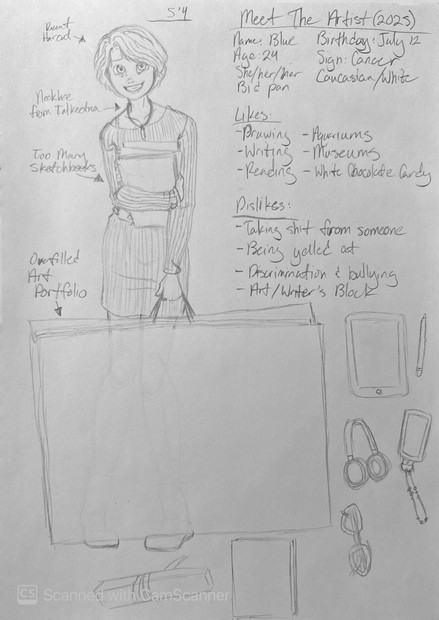 5'4
Meet The Artist (2023)
Name: Blue
Age: 24
She/her/her
Bi & pan
Birthday: July 12
Sign: Cancer
Caucasian/White
Recent
Haircut
Necklace
from Talkeetna
Too Many
Sketchbooks
Overfilled
Art
Portfolio
Likes:
-Drawing
-Writing
-Reading
-Aquariums
-Museums
-White Chocolate Candy
Dislikes:
-Taking shit from someone
-Being yelled at
-Discrimination & bullying
-Art/Writer's Block
CS Scanned with CamScanner